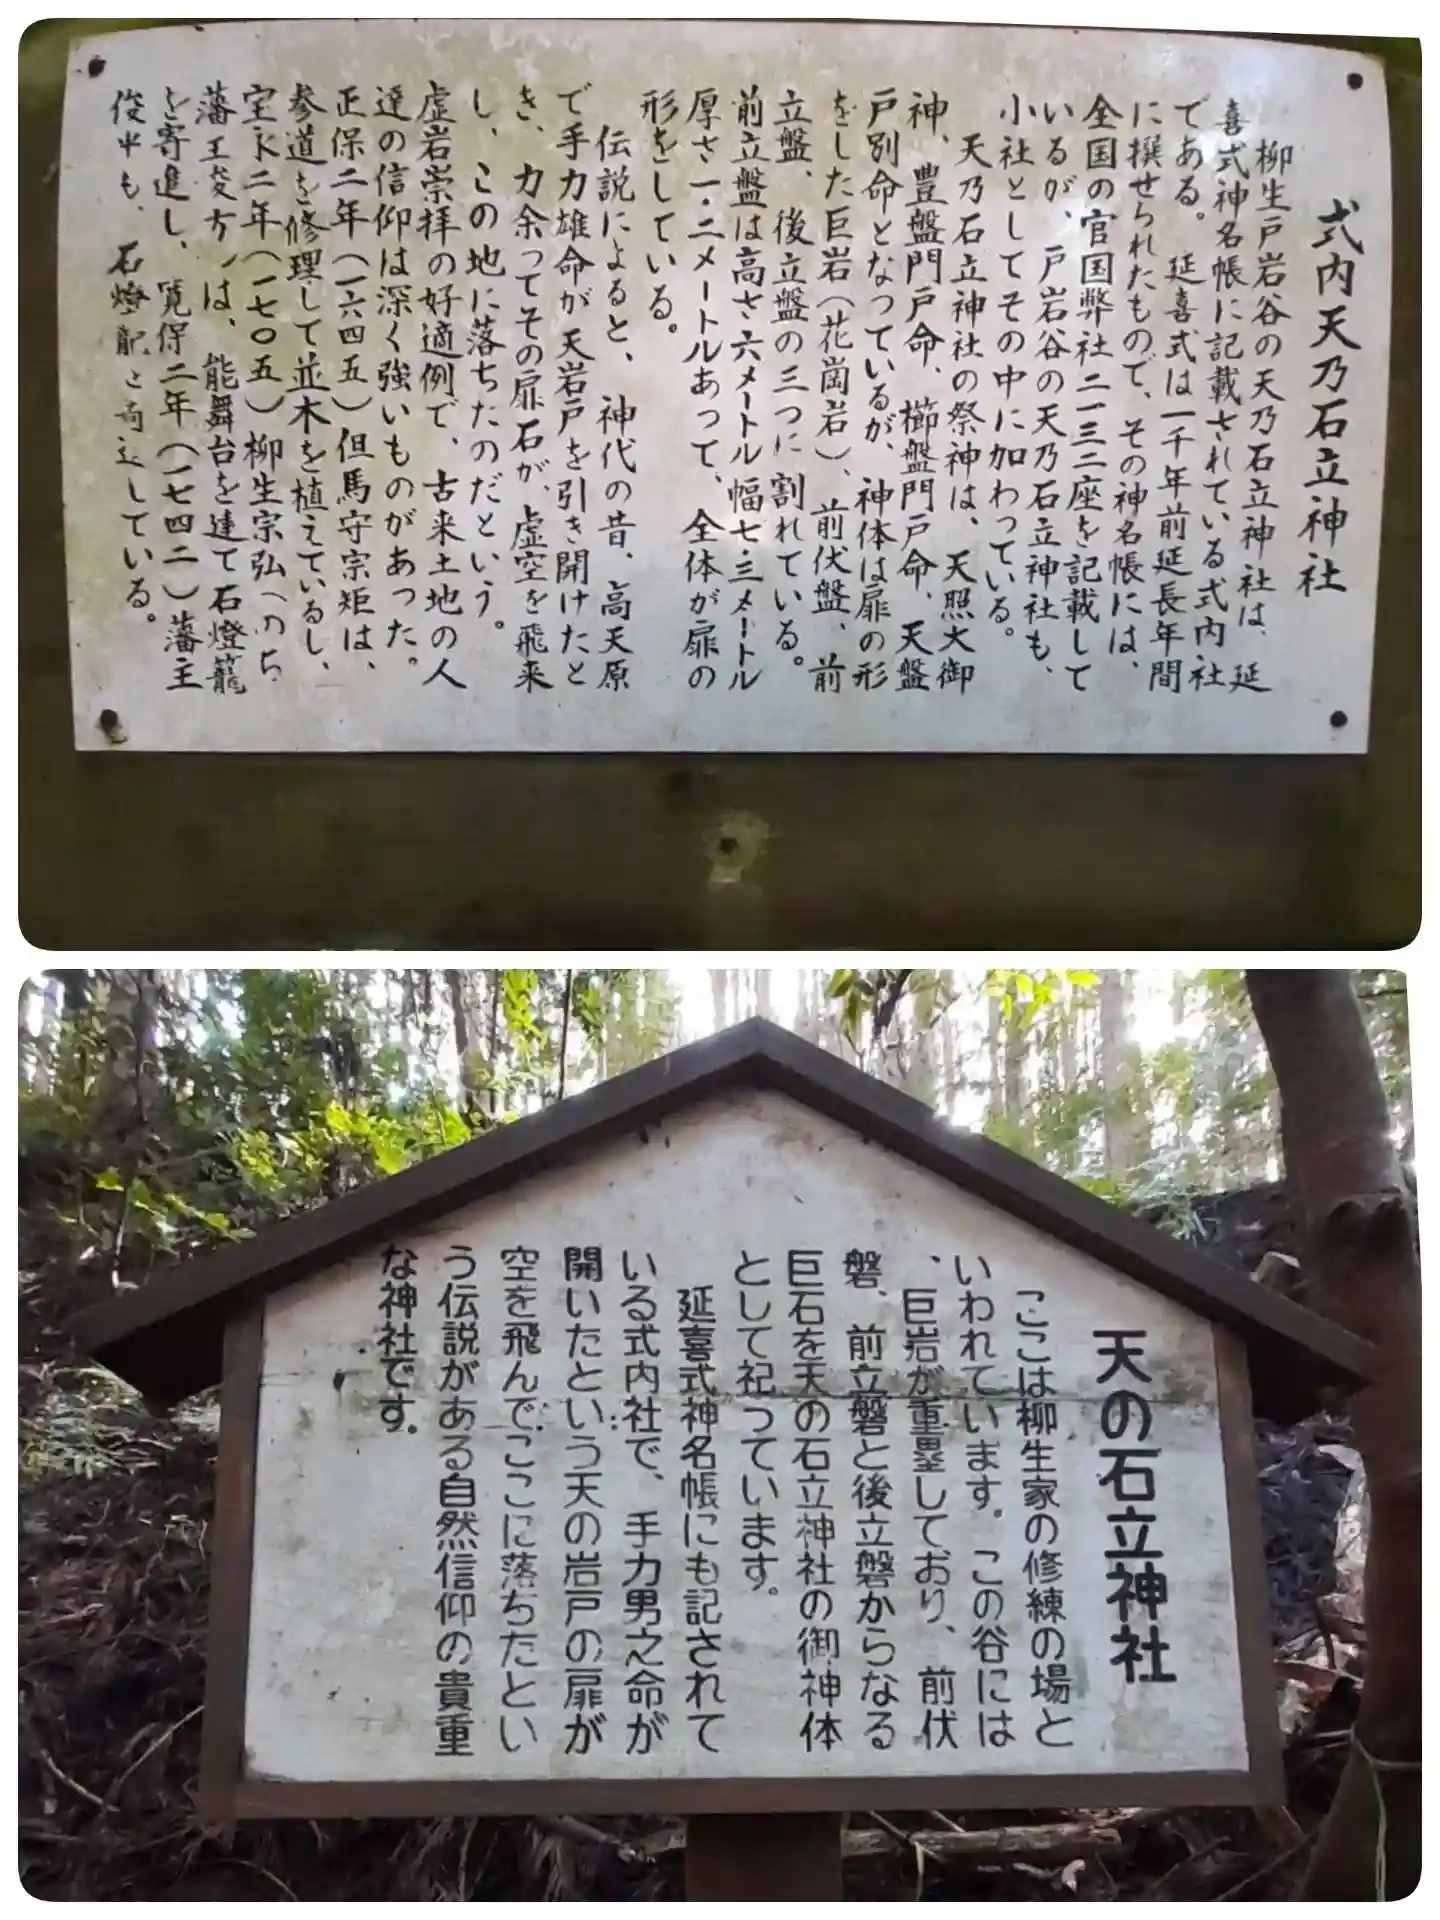 式内天乃石立神社
柳生戸岩谷の天乃石立神社は、延
喜式神名帳に記載されている式内社
である。延喜式は一千年前延長年間
に撰せられたもので、その神名帳には、
全国の官国弊社二一三二座を記載して
いるが、戸岩谷の天乃石立神社も、
小社としてその中に加わっている。
天乃石立神社の祭神は、天照大御
神、豊盤門戸命、櫛盤門戸命、天盤
戸別命となっているが、神体は扉の形
をした巨岩(花崗岩)、前伏盤、前
立盤、後立盤の三つに割れている。
前立盤は高さ六メートル幅七・三メートル
厚さ一・二メートルあって、全体が扉の
形をしている。
伝説によると、神代の昔、高天原
で手力雄命が天岩戸を引き開けたと
き、力余ってその扉石が、虚空を飛来
し、この地に落ちたのだという。
虚岩崇拝の好適例で、古来土地の人
達の信仰は深く強いものがあった。
正保二年(一六四五)但馬守宗矩は、
参道を修理して並木を植えているし、
宝永二年(一七〇五)柳生宗弘(のち
藩主俊方)は、能舞台を建て石燈籠
を寄進し、寛保二年(一七四二)藩主
俊平も、石燈籠を寄進している。
天の石立神社
ここは柳生家の修練の場と
いわれています。この谷には
、巨岩が重塁しており、前伏
磐、前立磐と後立磐からなる
巨石を天の石立神社の御神体
として祀っています。
延喜式神名帳にも記されて
いる式内社で、手力男之命が
開いたという天の岩戸の扉が
空を飛んでここに落ちたとい
う伝説がある自然信仰の貴重
な神社です。